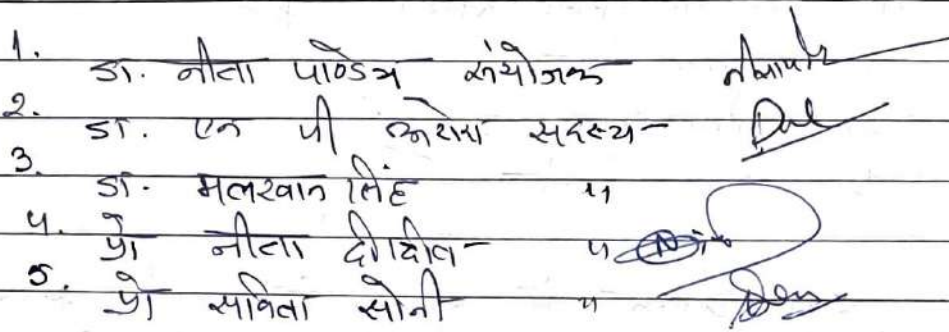 1. डा. नीता पाण्डेय संयोजक
2. डा. एन पी सदस्य-
3. डा. मलखान सिंह "
4. प्रो नीता "
5. प्रो सविता सोनी "